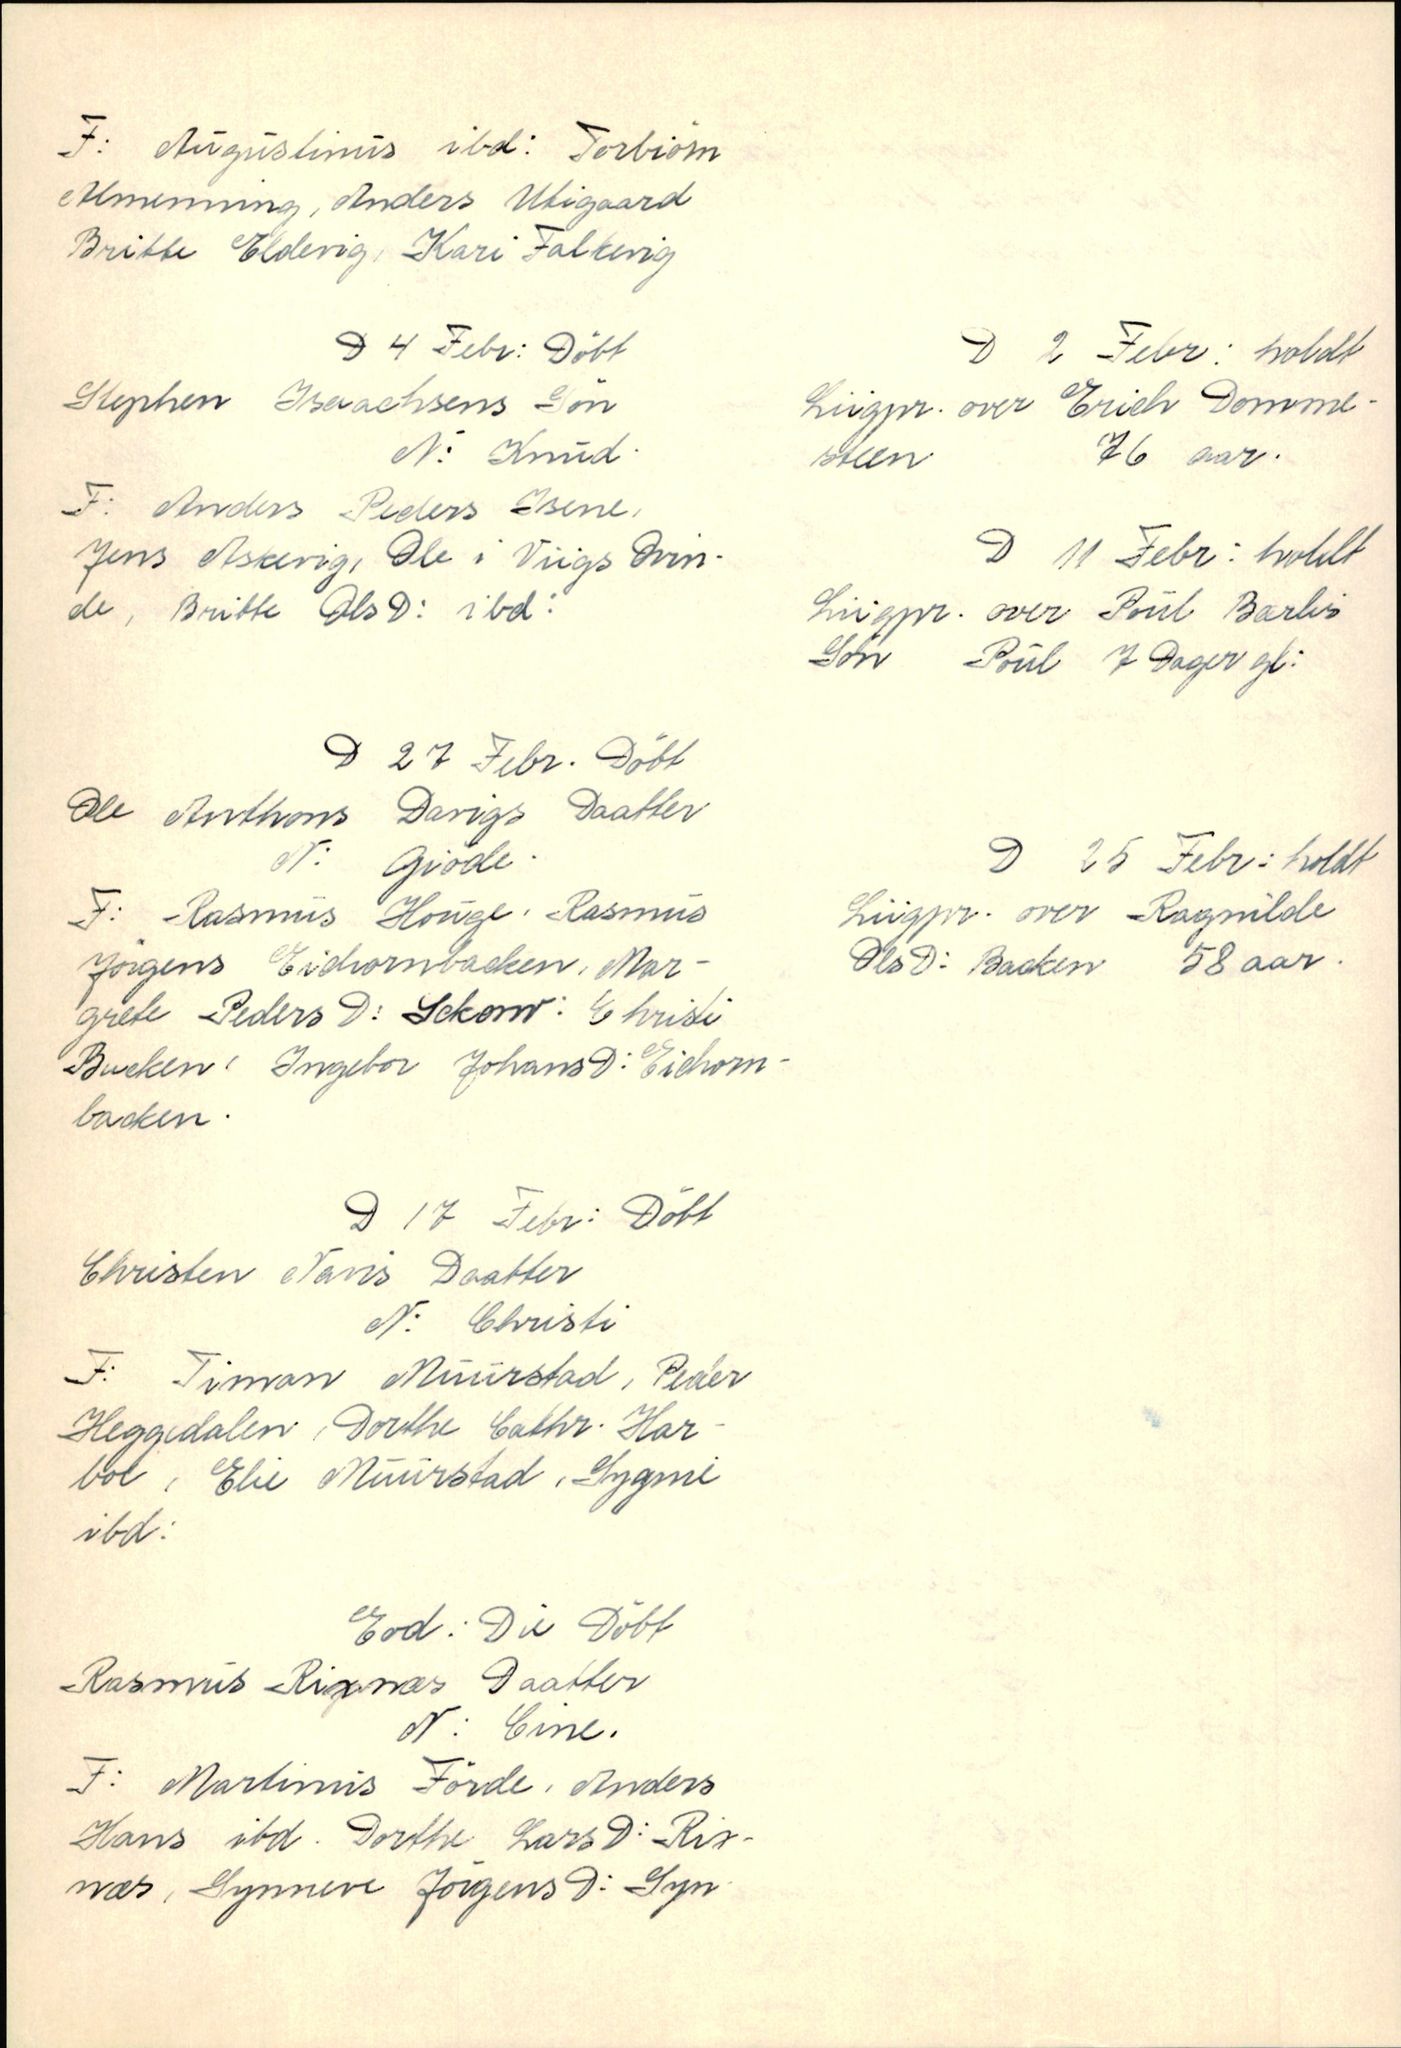 F: Augustinus ibd: Torbiörn
Almenning, Anders Utigaard
Britte Eldevig, Kari Falkevig
D 4 Febr: Döbt
Stephen Isaachsens Sön
N: Knud.
F: Anders Peders Isene,
Jens Askevig, Ole i Viigs Qvin-
de, Britte OlsD: ibd:
D 27 Febr. Döbt
Ole Anthons Davigs Daatter
N: Giöde.
F: Rasmus Houge, Rasmus
Jörgens Eichornbacken, Mar-
grete Peders D: Sckow: Christi
Backen, Ingebor JohansD: Eichorn-
backen.
D 17 Febr: Döbt
Christen Navis Daatter
N: Christi
F: Timan Muurstad, Peder
Heggedalen, Dorthe Cathr. Har-
boe, Elie Muurstad, Sygni
ibd:
Eod: Die Döbt
Rasmus Rixnæs Daatter
N: Cine.
F: Martinus Förde, Anders
Hans ibd. Dorthe LarsD: Rix-
næs, Synneve JörgensD: Syn
D 2 Febr: holdt
Liigpr. over Erich Domme-
steen 76 aar.
D 11 Febr: holdt
Liigpr. over Poul Barlis
Sön Poul 7 Dager gl:
D 25 Febr: holdt
Liigpr. over Ragnilde
OlsD: Backen 58 aar.